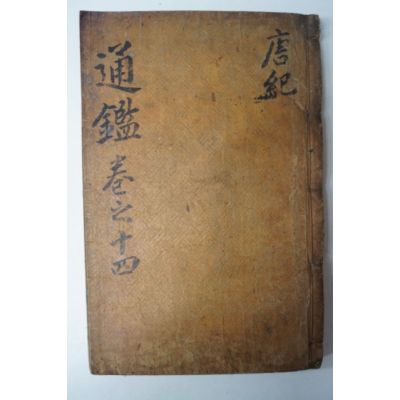 唐紀
通鑑卷之十四